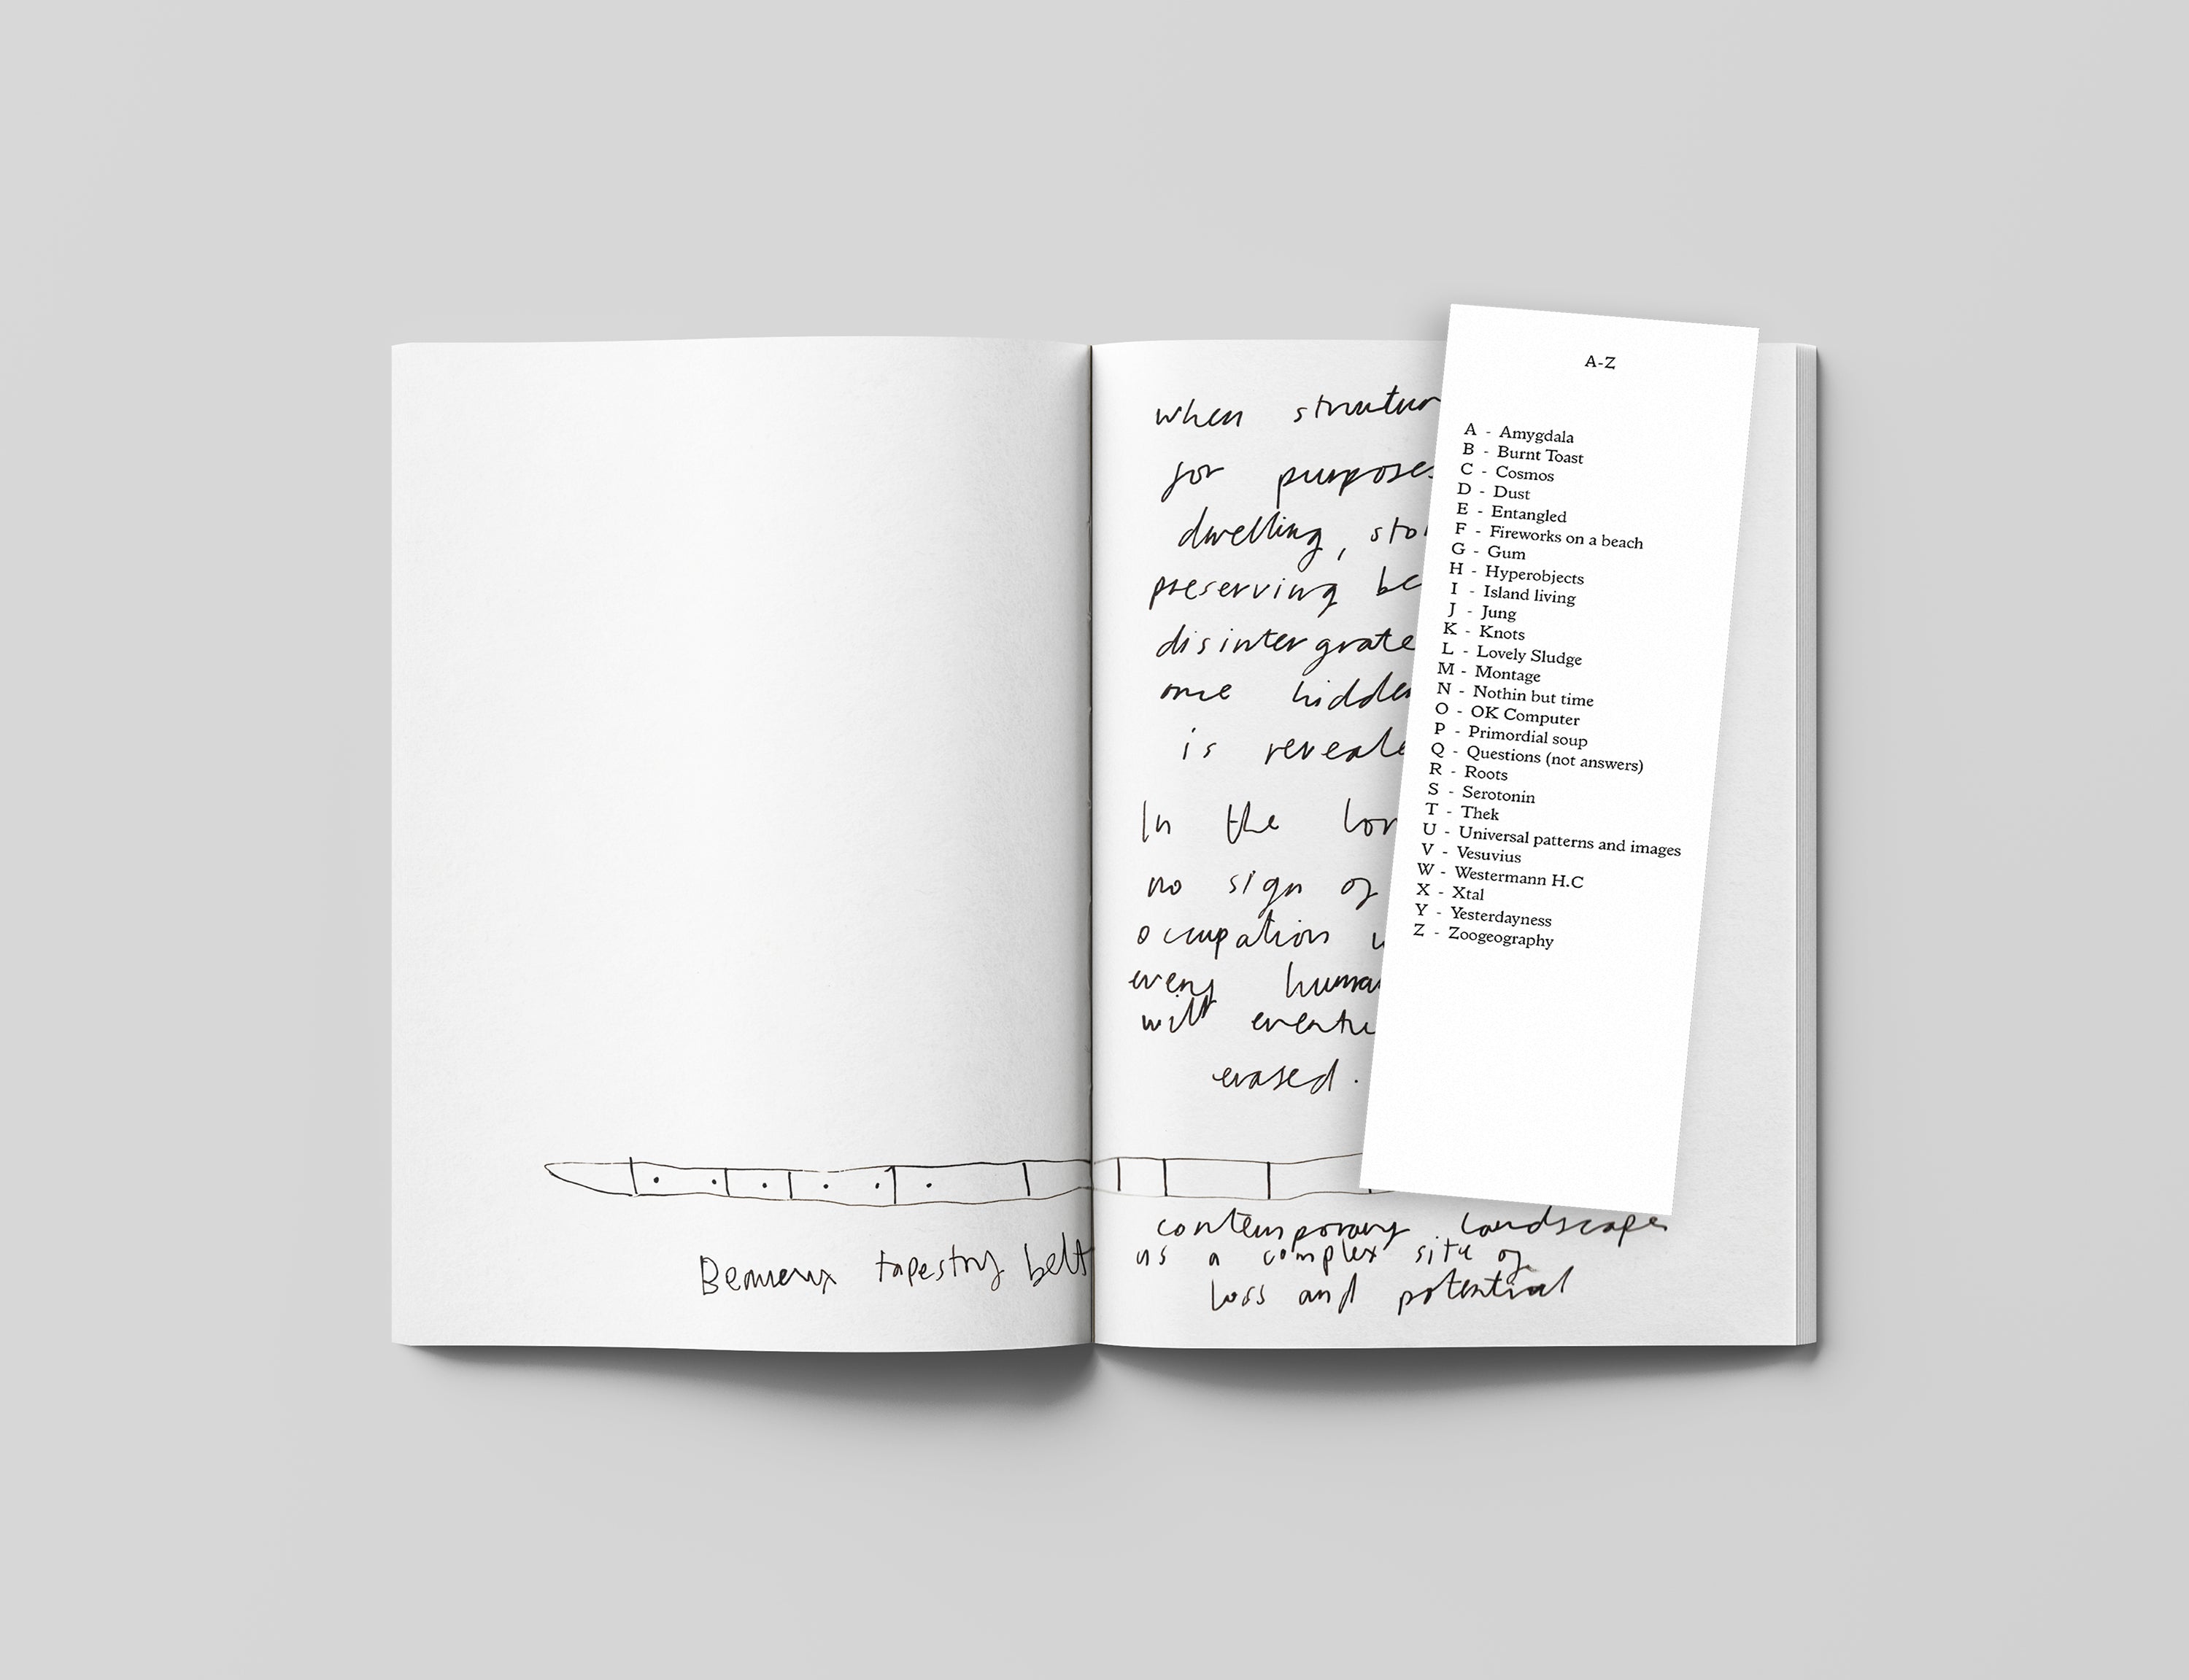 when
for purposes
dwelling,
preserving
disintergrate
once hidden
is
In the
no sign of
occupation
every
will
erased.
contemporary landscape
as a complex site of
loss and potential
tapestry belt
A-Z
A - Amygdala
B - Burnt Toast
C - Cosmos
D - Dust
E - Entangled
F - Fireworks on a beach
G - Gum
H - Hyperobjects
I - Island living
J - Jung
K - Knots
L - Lovely Sludge
M - Montage
N - Nothin but time
O - OK Computer
P - Primordial soup
Q - Questions (not answers)
R - Roots
S - Serotonin
T - Thek
U - Universal patterns and images
V - Vesuvius
W - Westermann H.C
X - Xtal
Y - Yesterdayness
Z - Zoogeography